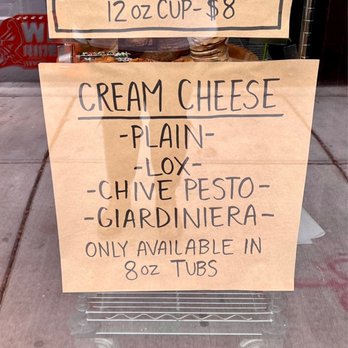 12 OZ CUP - $8
CREAM CHEESE
-PLAIN-
-LOX-
-CHIVE PESTO-
-GIARDINIERA-
ONLY AVAILABLE IN
8 OZ TUBS